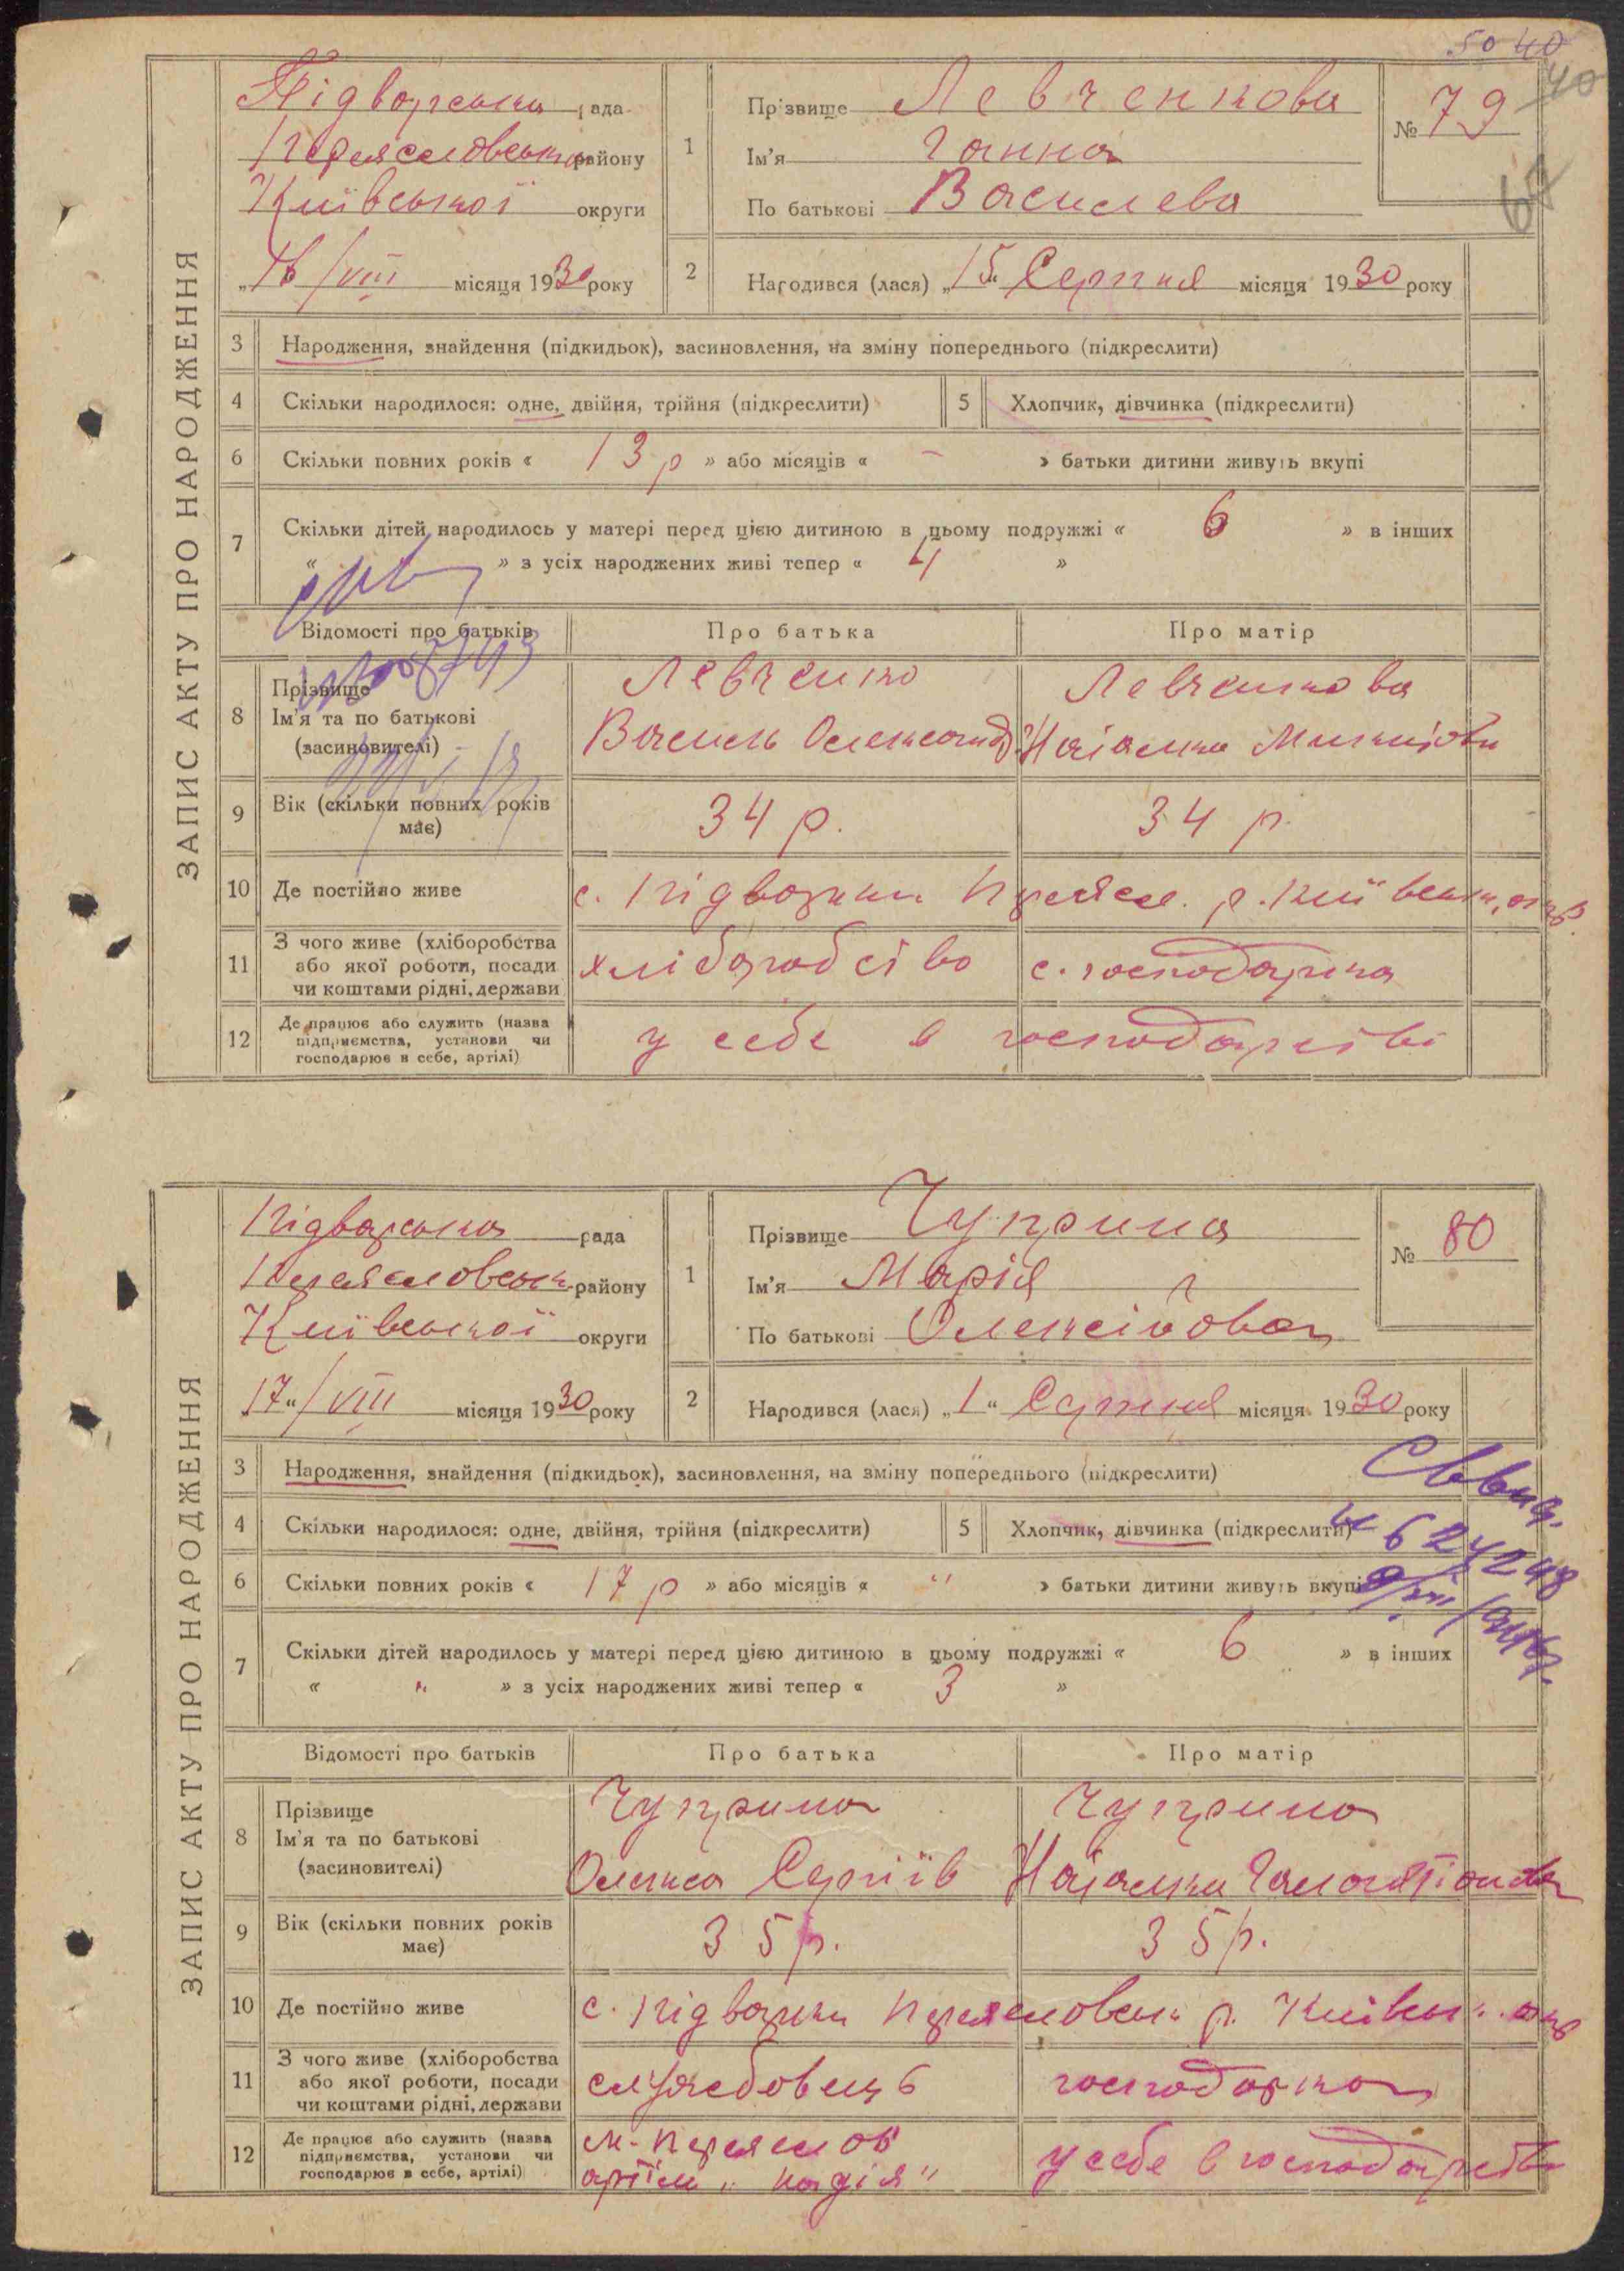 50 40
40
ЗАПИС АКТУ ПРО НАРОДЖЕННЯ
Підворська рада
Переясловськ району
Київської округи
„16/VIII місяця 1930 року
1 Прізвище Левченкова
Ім'я Ганна
По батькові Василева
№ 79
2 Народився (лася) „15“ Серпня місяця 1930 року
3 Народження, знайдення (підкидьок), засиновлення, на зміну попереднього (підкреслити)
4 Скільки народилося: одне, двійня, трійня (підкреслити) 5 Хлопчик, дівчинка (підкреслити)
6 Скільки повних років « 13 р » або місяців « – » батьки дитини живуть вкупі
7 Скільки дітей народилось у матері перед цією дитиною в цьому подружжі « 6 » в інших
« » з усіх народжених живі тепер « 4 »
Відомості про батьків Про батька Про матір
8 Прізвище
Ім'я та по батькові
(засиновителі)
Левченко
Василь Олександ
Левченкова
Наталка
9 Вік (скільки повних років має) 34 р. 34 р.
10 Де постійно живе с. Підворки Переясл. р. Київськ. окр.
11 З чого живе (хліборобства
або якої роботи, посади
чи коштами рідні, держави
хліборобство с. господарка
12 Де працює або служить (назва
підприємства, установи чи
господарює в себе, артілі)
у себе в господарстві
ЗАПИС АКТУ ПРО НАРОДЖЕННЯ
Підворська рада
Переясловськ. району
Київської округи
„17“/VIII місяця 1930 року
1 Прізвище Чуприна
Ім'я Марія
По батькові Олексійова
№ 80
2 Народився (лася) „1“ Серпня місяця 1930 року
3 Народження, знайдення (підкидьок), засиновлення, на зміну попереднього (підкреслити)
4 Скільки народилося: одне, двійня, трійня (підкреслити) 5 Хлопчик, дівчинка (підкреслити)
6 Скільки повних років « 17 р » або місяців « “ » батьки дитини живуть вкупі
7 Скільки дітей народилось у матері перед цією дитиною в цьому подружжі « 6 » в інших
« " » з усіх народжених живі тепер « 3 »
Відомості про батьків Про батька Про матір
8 Прізвище
Ім'я та по батькові
(засиновителі)
Чуприна
Олекса Сергіїв
Чуприна
Наталка
9 Вік (скільки повних років має) 35 р. 35 р.
10 Де постійно живе с. Підворки Переясловськ р. Київськ. окр
11 З чого живе (хліборобства
або якої роботи, посади
чи коштами рідні, держави
службовець господарка
12 Де працює або служить (назва
підприємства, установи чи
господарює в себе, артілі)
м. Переяслов
артіль „Надія“
у себе в господарстві